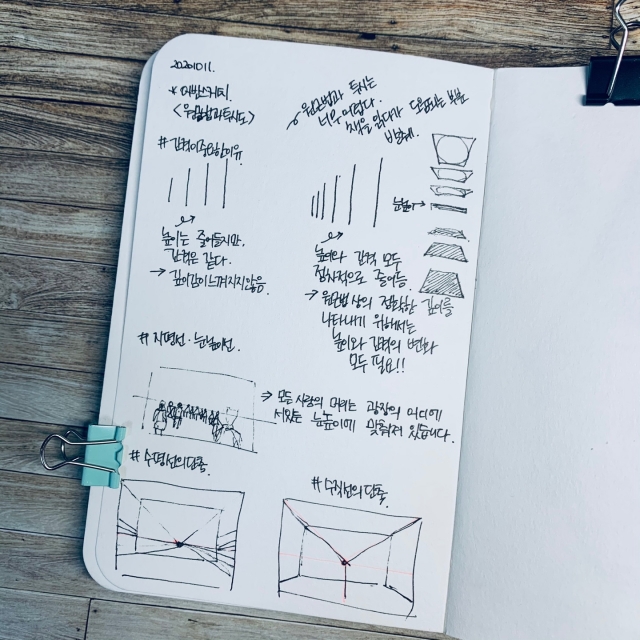 20201011.
* 데빌스케치.
<원근법과 투시도>
원근법과 투시는
너무 어렵다.
책을 읽다가 도움되는 부분
발췌.
# 간격이 중요한 이유.
높이는 줄어들지만,
간격은 같다.
→ 깊이감이 느껴지지 않음.
눈높이→
높이와 간격 모두
점차적으로 줄어듦.
→ 원근법상의 정확한 깊이를
나타내기 위해서는
높이와 간격의 변화
모두 필요!!
# 지평선 · 눈높이선.
→ 모든 사람의 머리는 광장의 어디에
서있든 눈높이에 맞춰져 있습니다.
# 수평선의 단축.
# 수직선의 단축.